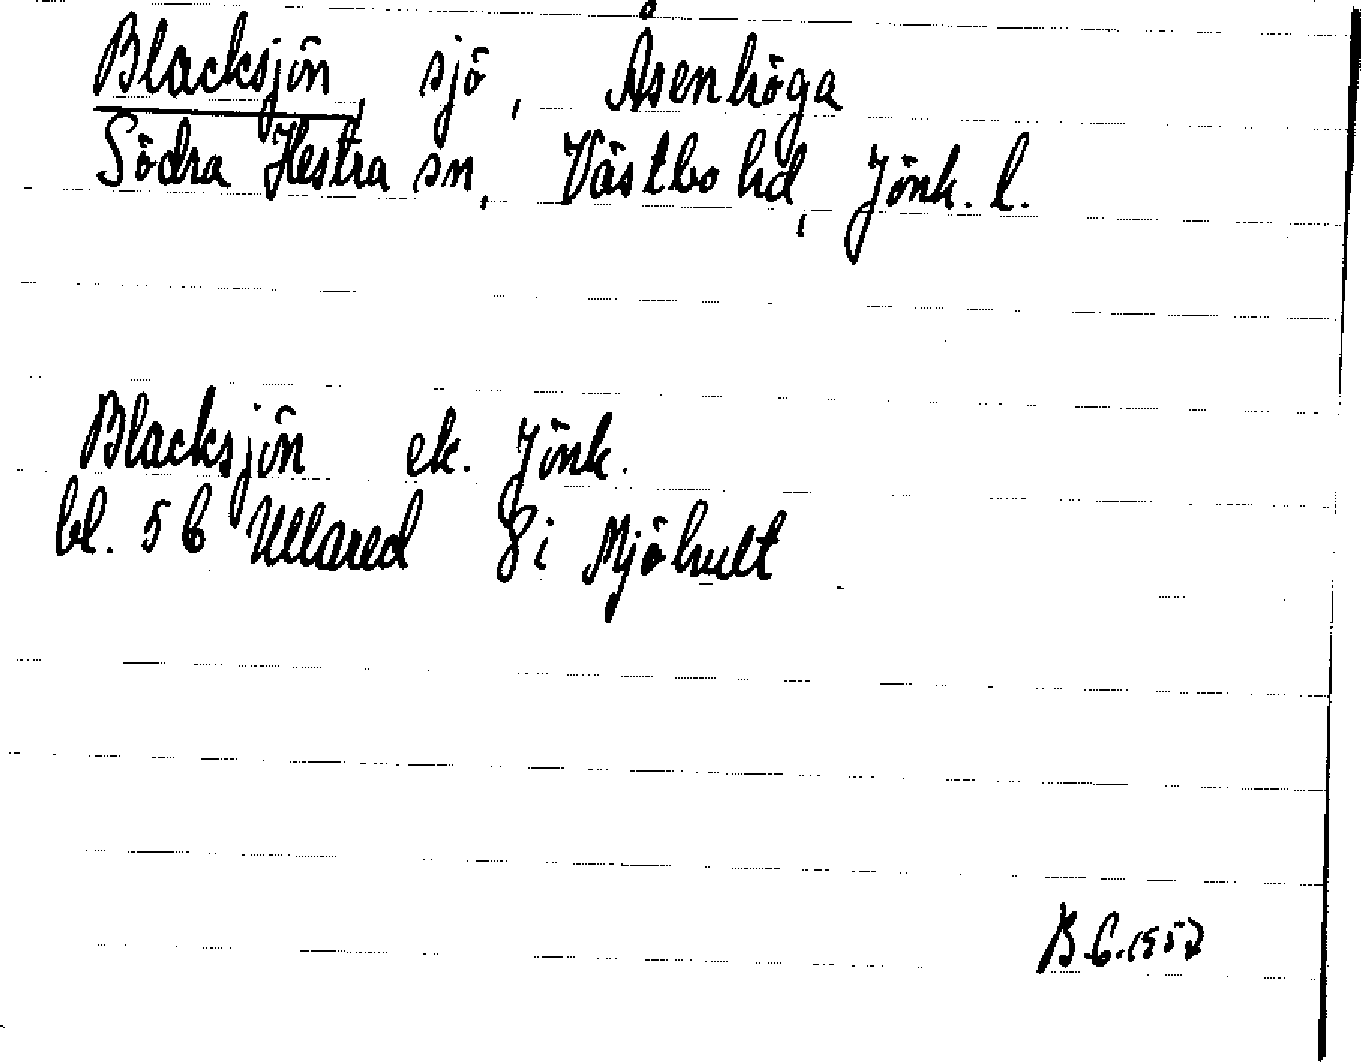 Blacksjön, sjö, Åsenhöga
Södra Hestra sn, Västbo hd, Jönk. l.
Blacksjön ek. Jönk.
bl. 5 6 Ullared 8 i Mjöhult